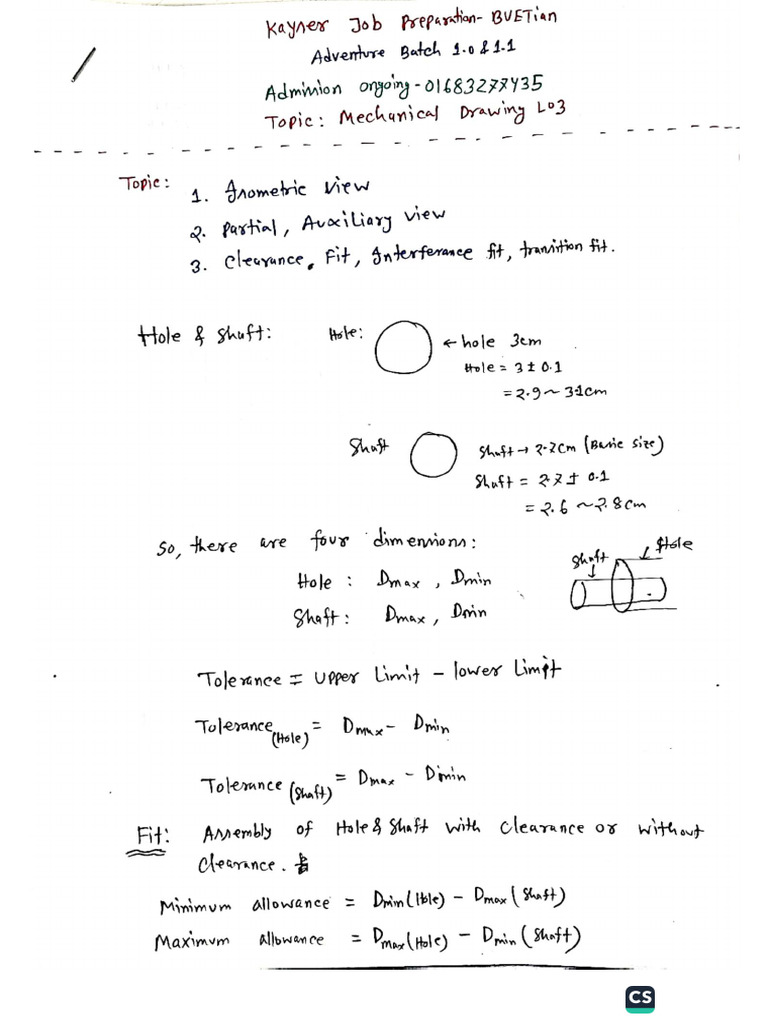 Kayner Job Preparation- BUETian
Adventure Batch 1.0 & 1.1
Adminion ongoing - 01683277435
Topic: Mechanical Drawing L03
Topic: 1. Isometric view
2. Partial, Auxiliary view
3. Clearance, Fit, Interferance fit, transition fit.
Hole & Shaft: Hole: ← hole 3cm
Hole = 3 ± 0.1
= 2.9 ~ 3.1cm
Shaft Shaft → 2.7cm (Basic size)
Shaft = 2.7 ± 0.1
= 2.6 ~ 2.8cm
So, there are four dimensions:
Shaft Hole
Hole : Dmax , Dmin
Shaft: Dmax, Dmin
Tolerance = Upper Limit - lower Limit
Tolerance (Hole) = Dmax - Dmin
Tolerance (Shaft) = Dmax - Dmin
Fit: Assembly of Hole & Shaft with clearance or without
clearance.
Minimum allowance = Dmin (Hole) - Dmax (Shaft)
Maximum allowance = Dmax (Hole) - Dmin (Shaft)
CS